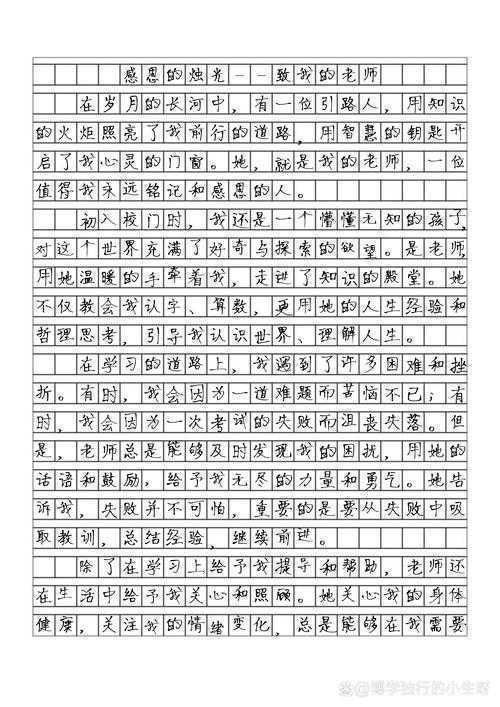 感恩的烛光--致我的老师
在岁月的长河中，有一位引路人，用知识
的火炬照亮了我前行的道路，用智慧的钥匙开
启了我心灵的门窗。她，就是我的老师，一位
值得我永远铭记和感恩的人。
初入校门时，我还是一个懵懂无知的孩子，
对这个世界充满了好奇与探索的欲望。是老师，
用她温暖的手牵着我，走进了知识的殿堂。她
不仅教会我认字、算数，更用她的人生经验和
哲理思考，引导我认识世界、理解人生。
在学习的道路上，我遇到了许多困难和挫
折。有时，我会因为一道难题而苦恼不已；有
时，我会因为一次考试的失败而沮丧失落。但
是，老师总是能够及时发现我的困扰，用她的
话语和鼓励，给予我无尽的力量和勇气。她告
诉我，失败并不可怕，重要的是要从失败中吸
取教训，总结经验，继续前进。
除了在学习上给予我提导和帮助，老师还
在生活中给予我关心和照顾。她关心我的身体
健康，关注我的情绪变化，总是能够在我需要
博学独行的小生呀